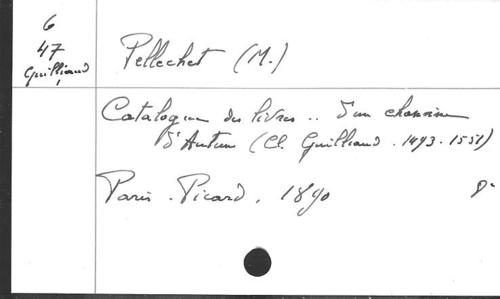 6
47
Guilliaud
Pellechet (M.)
Catalogue des livres .. d'un chanoine
d'Autun (Cl. Guilliaud . 1493 . 1551)
Paris . Picard . 1890 8°